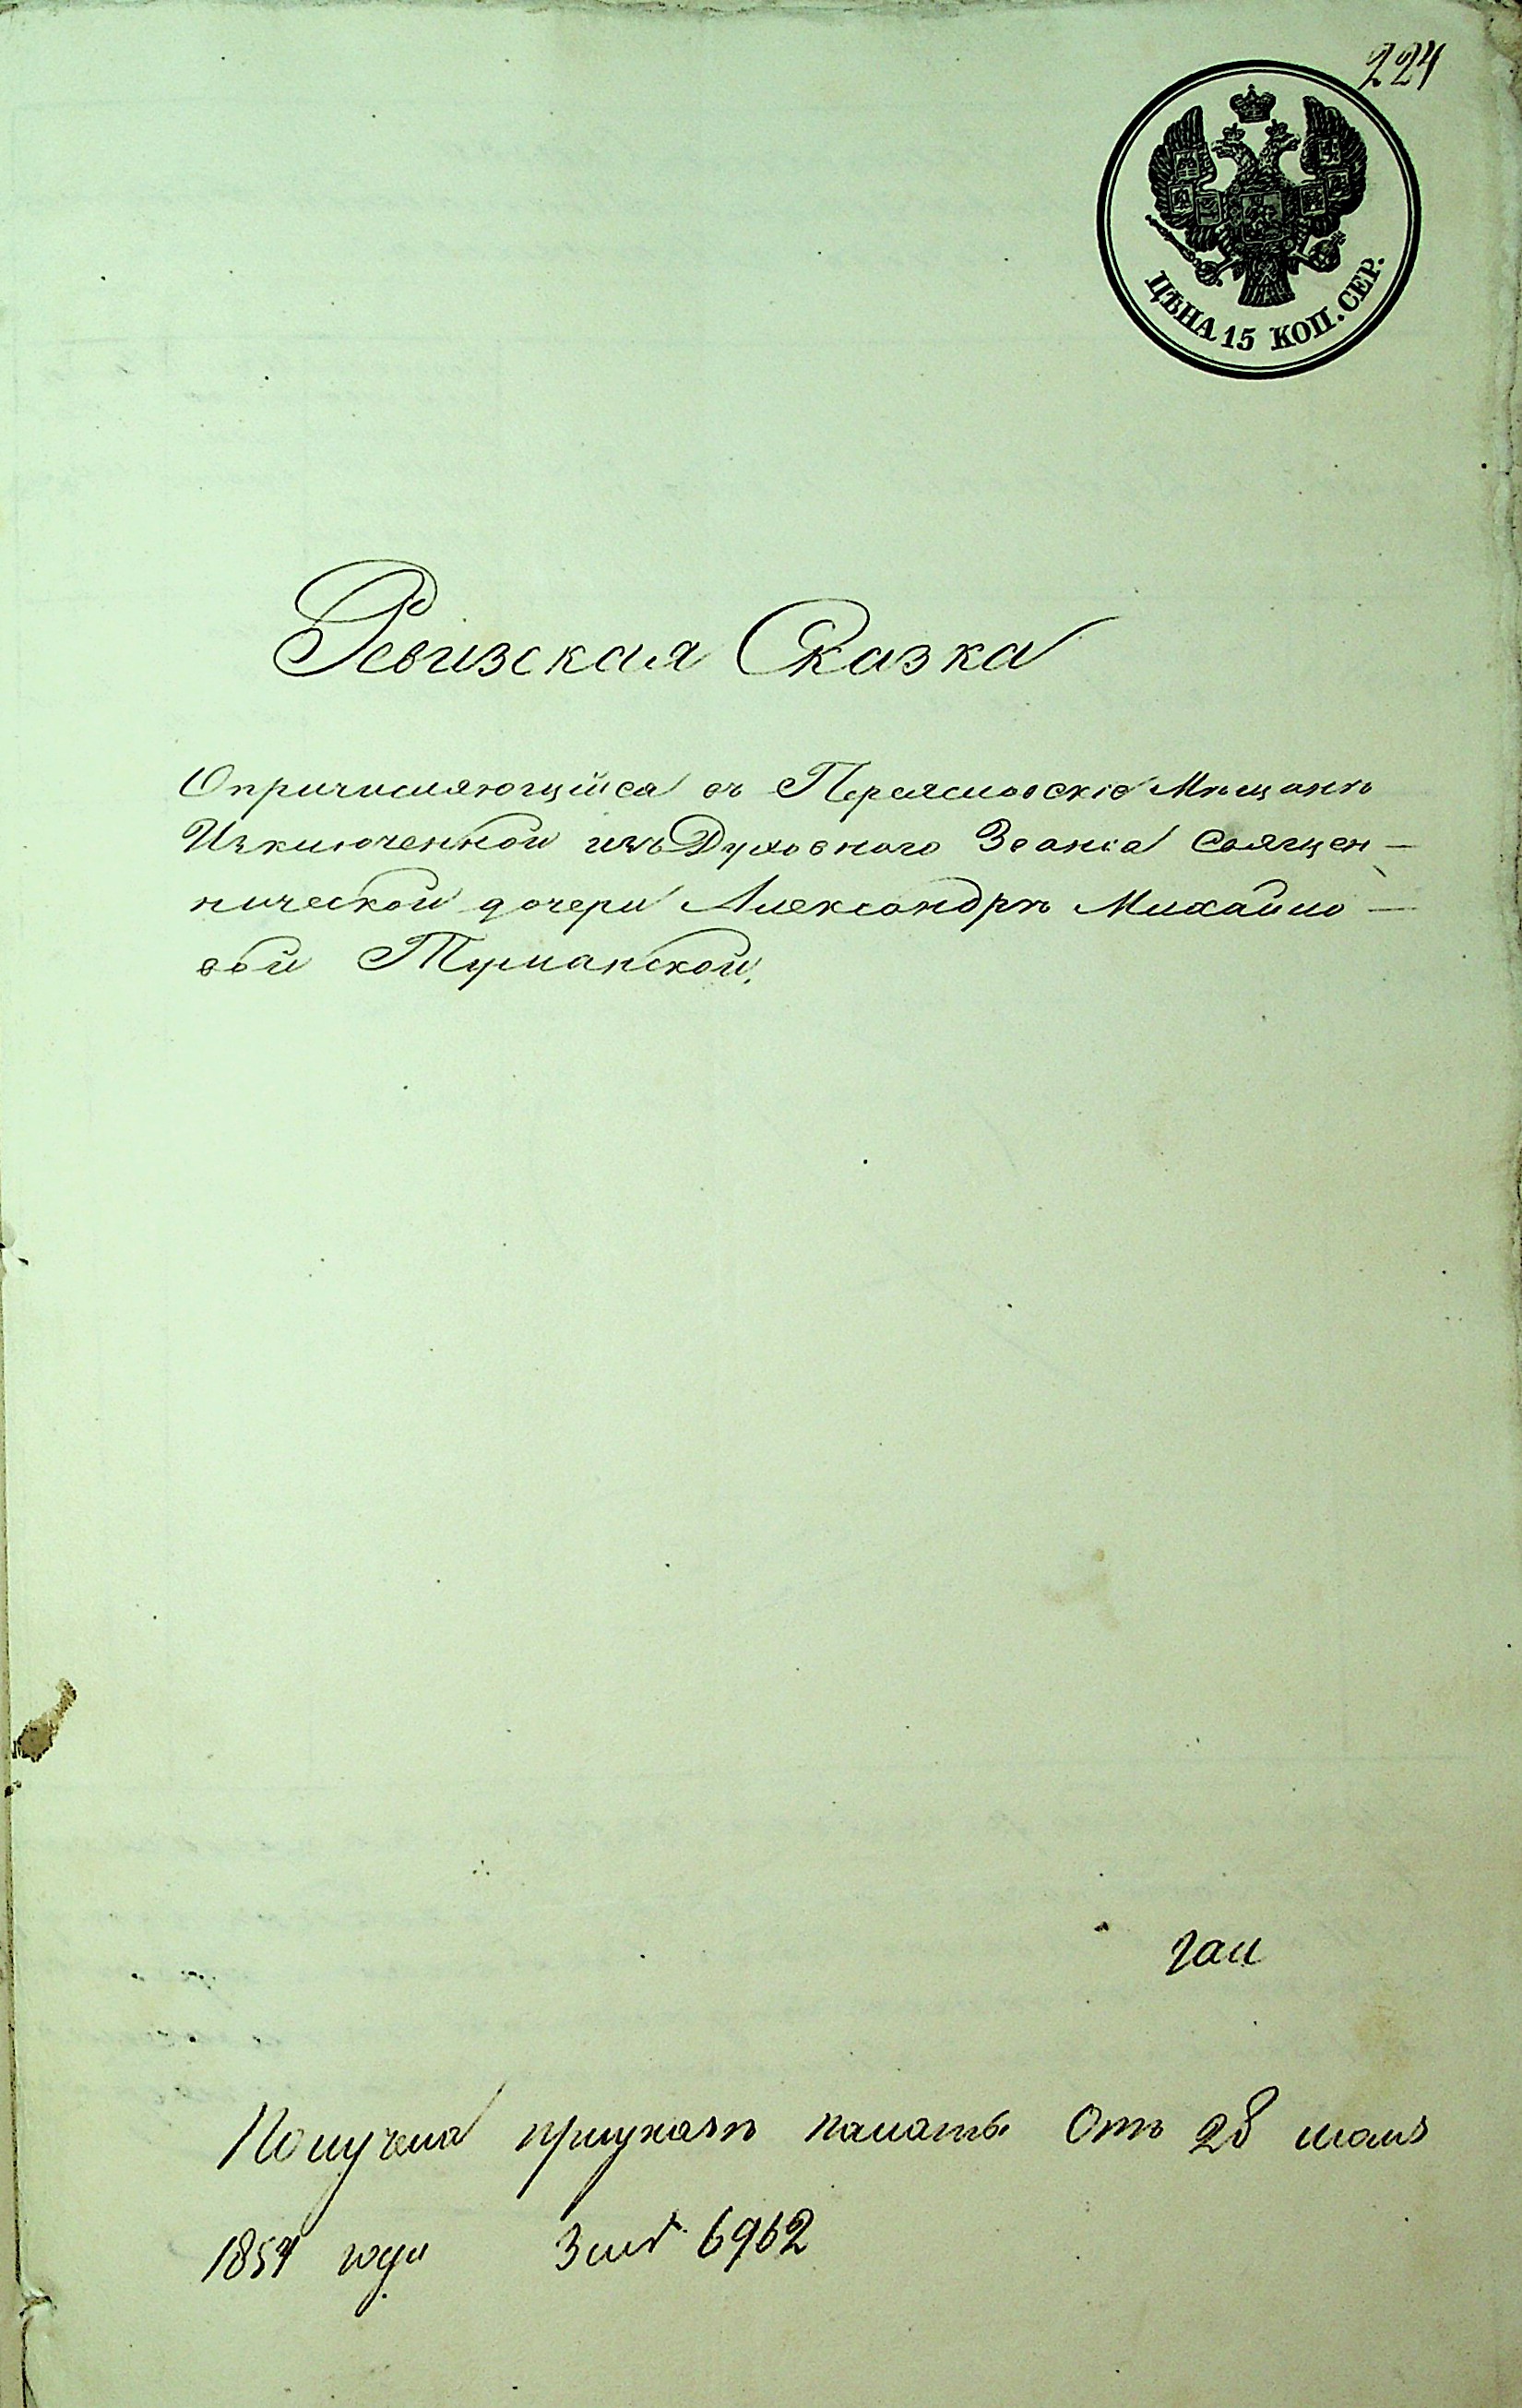 224
ЦѢНА 15 КОП. СЕР.
Ревизская Сказка
Опричисляющійся въ Переясловскіе Мѣщанѣ
Изключенной изъ Духовного Званія Священ-
нической дочери Александрѣ Михайло-
вой Туманской.
Получена при указѣ палаты Отъ 28 мая
185 года За № 6962